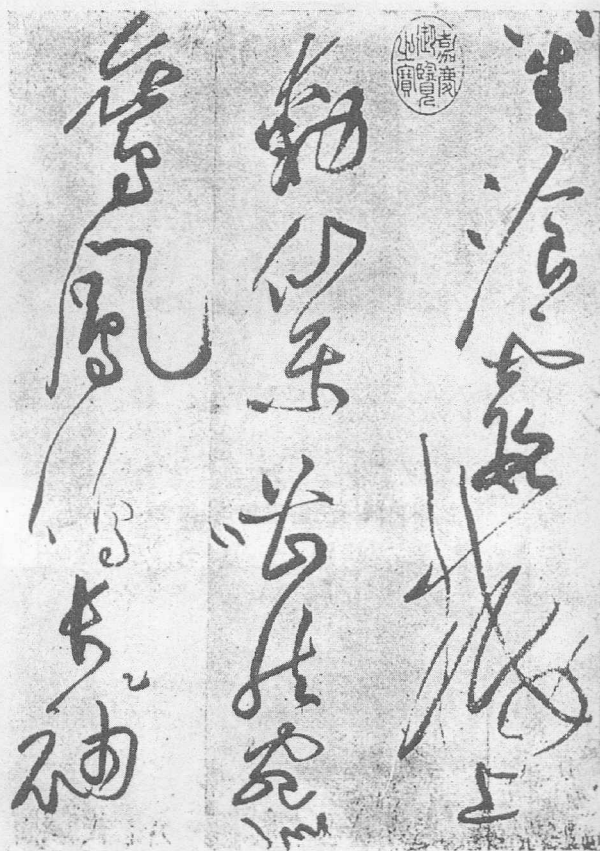 嘉慶御覽之寶
笙飡霞樓上
動仙樂嘈然宛似
鸞鳳鳴長袖